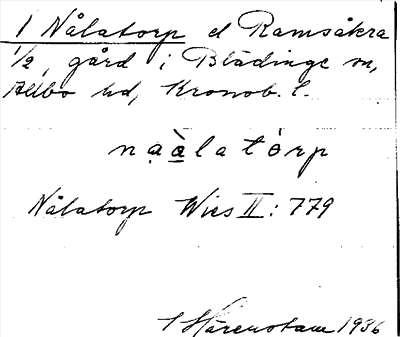 1 Nålatorp el Ramsåkra
1/2, gård i Blädinge sn,
Allbo hd, Kronob. l.
nạà̱latòrp
Nålatorp Wies II: 779
1936